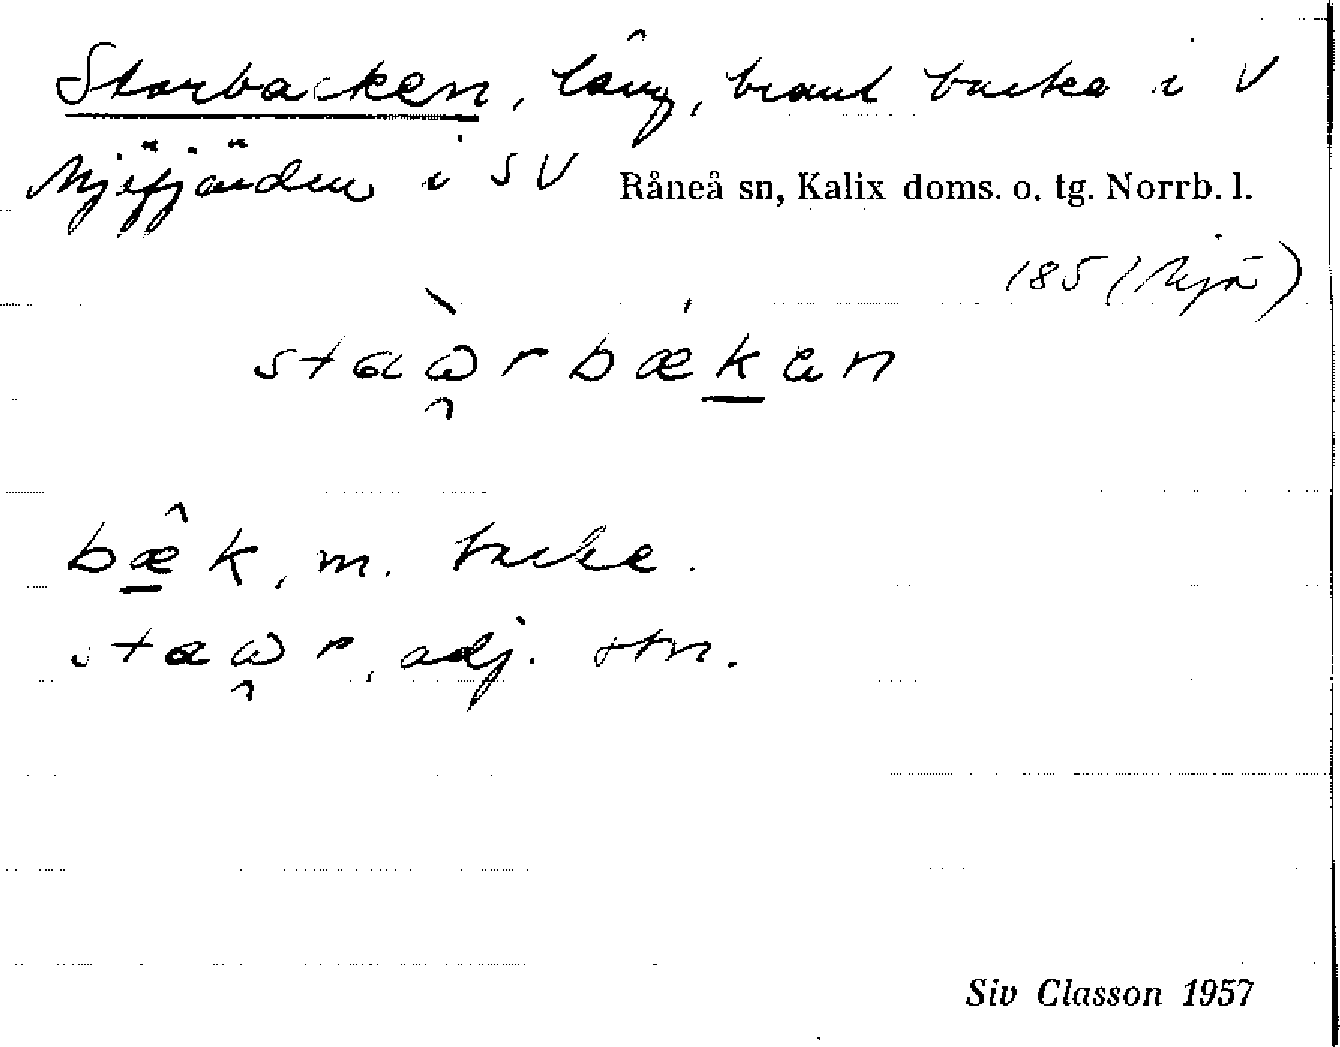 Storbacken, lång, brant backe i V
Mjöfjärden i SV Råneå sn, Kalix doms. o. tg. Norrb. l.
185 (Mjö)
staω̂rbækan
bæ̂k, m. backe.
staω̂r, adj. stor.
Siv Classon 1957